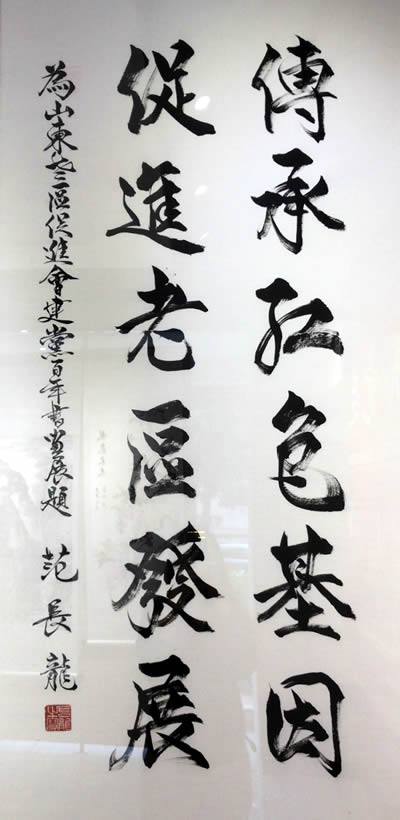 傳承红色基因
促進老區發展
為山東老區促進會建黨百年書畫展題 范長龍